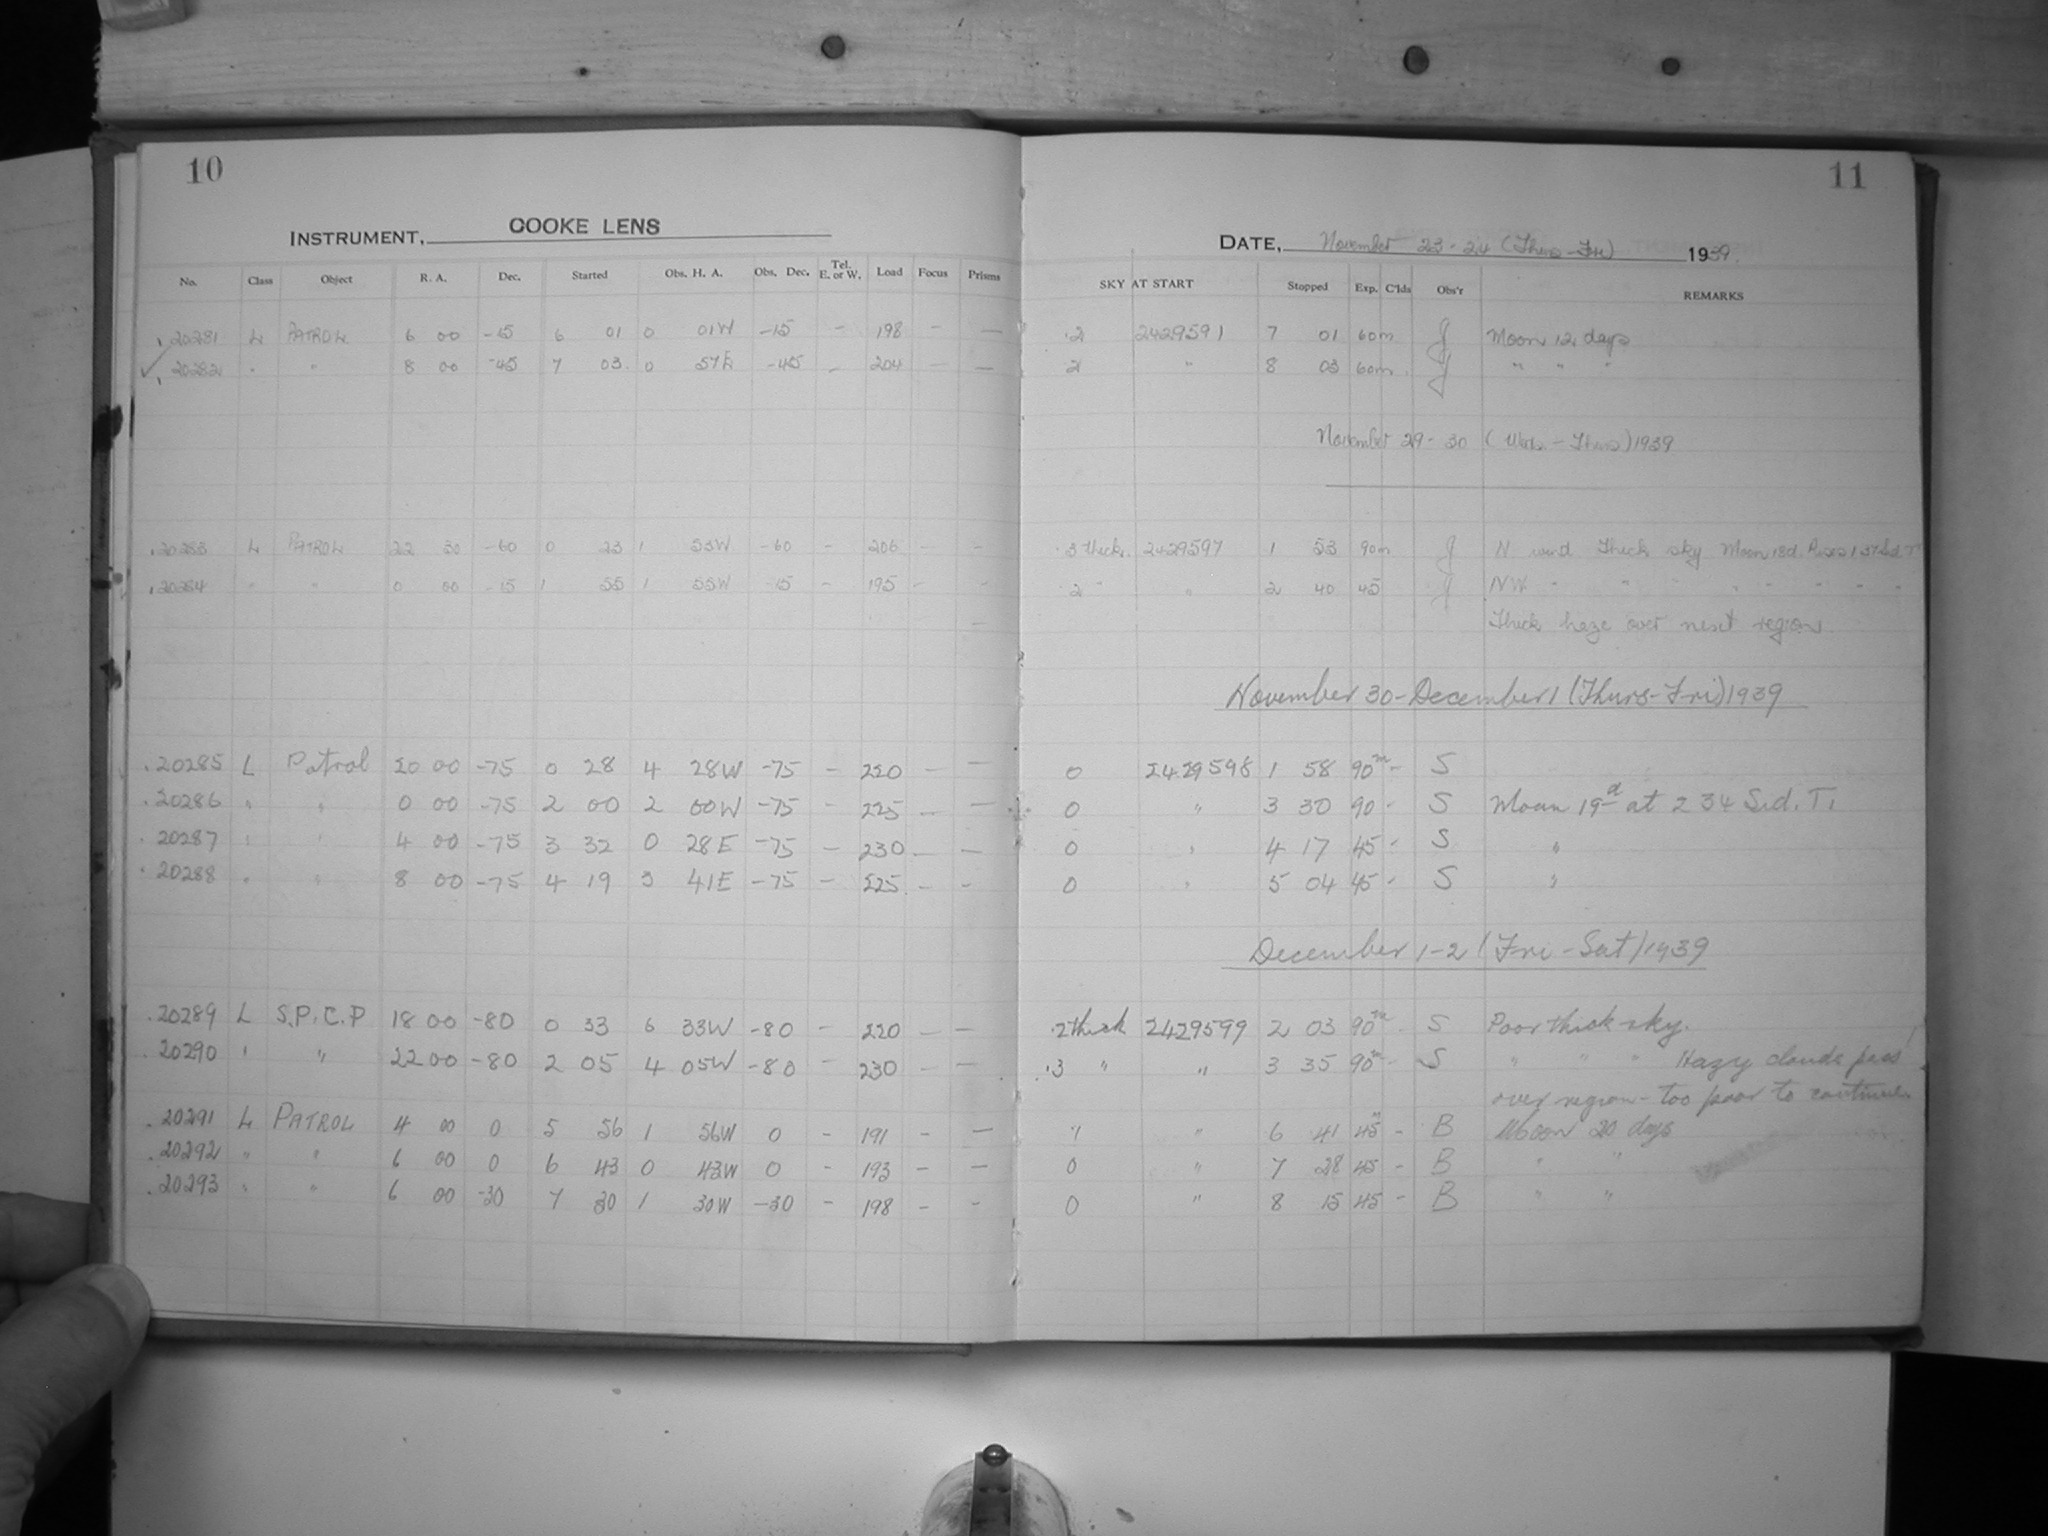 10
INSTRUMENT, COOKE LENS
No. Class Object R. A. Dec. Started Obs. H. A. Obs. Dec. Tel. E. or W. Load Focus Prisms
20281 L PATROL 6 00 -15 6 01 0 01W -15 - 198 - -
20282 " " 8 00 -45 7 03 0 57E -45 - 204 - -
20283 L PATROL 22 30 -60 0 23 1 53W -60 - 206 - -
20284 " " 0 00 -15 1 55 1 55W -15 - 195 - -
20285 L Patrol 20 00 -75 0 28 4 28W -75 - 220 - -
20286 " " 0 00 -75 2 00 2 00W -75 - 225 - -
20287 " " 4 00 -75 3 32 0 28E -75 - 230 - -
20288 " " 8 00 -75 4 19 3 41E -75 - 225 - -
20289 L S.P.C.P 18 00 -80 0 33 6 33W -80 - 220 - -
20290 " " 22 00 -80 2 05 4 05W -80 - 230 - -
20291 L PATROL 4 00 0 5 56 1 56W 0 - 191 - -
20292 " " 6 00 0 6 43 0 43W 0 - 193 - -
20293 " " 6 00 -30 7 30 1 30W -30 - 198 - -
11
DATE, November 23-24 (Thurs-Fri) 1939.
SKY AT START Stopped Exp. C'lds Obs'r REMARKS
.2 2429591 7 01 60m J Moon 12 days
2 " 8 03 60m J " " "
November 29-30 (Weds-Thurs) 1939
.3 thick. 2429597 1 53 90m J N wind Thick sky Moon 18d. Rises 1 37 Sid. T
2 " " 2 40 45 J NW " " " " " " "
Thick haze over next region
November 30-December 1 (Thurs-Fri) 1939
0 2429598 1 58 90m - S
0 " 3 30 90 - S Moon 19d at 2 34 Sid. T.
0 " 4 17 45 - S "
0 " 5 04 45 - S "
December 1-2 (Fri-Sat) 1939
.2 thick 2429599 2 03 90m - S Poor thick sky.
.3 " " 3 35 90m - S " " " Hazy clouds pass
over region - too poor to continue
1 " 6 41 45m - B Moon 20 days
0 " 7 28 45 - B " "
0 " 8 15 45 - B " "